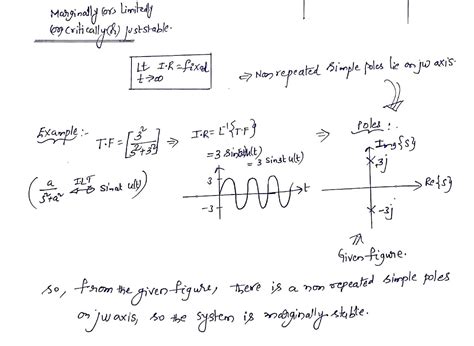 Marginally (or) Limitedly
(or) critically (or) just stable.
Lt I.R = fixed
t→∞
⇒ Non repeated simple poles lie on jω axis.
Example:- T.F = [3²/s²+3²] ⇒ I.R = L⁻¹{T.F} ⇒ Poles:-
= 3 sin3t u(t)
= 3 sin3t u(t)
(a/s²+a² ILT Sinat u(t))
3
-3
t
Img{s}
3j
Re{s}
-3j
Given figure.
So, from the given figure, there is a non repeated simple poles
on jω axis, so the system is marginally stable.